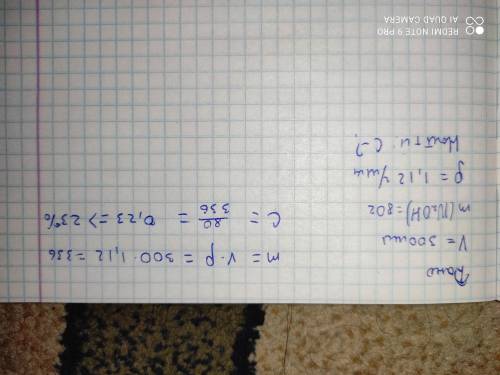 Дано
V = 300мл
m(NaOH) = 80г
ρ = 1,12 г/мл
Найти: C-?
m = V · ρ = 300 · 1,12 = 336
C = 80/336 = 0,23 => 23%
REDMI NOTE 9 PRO
AI QUAD CAMERA